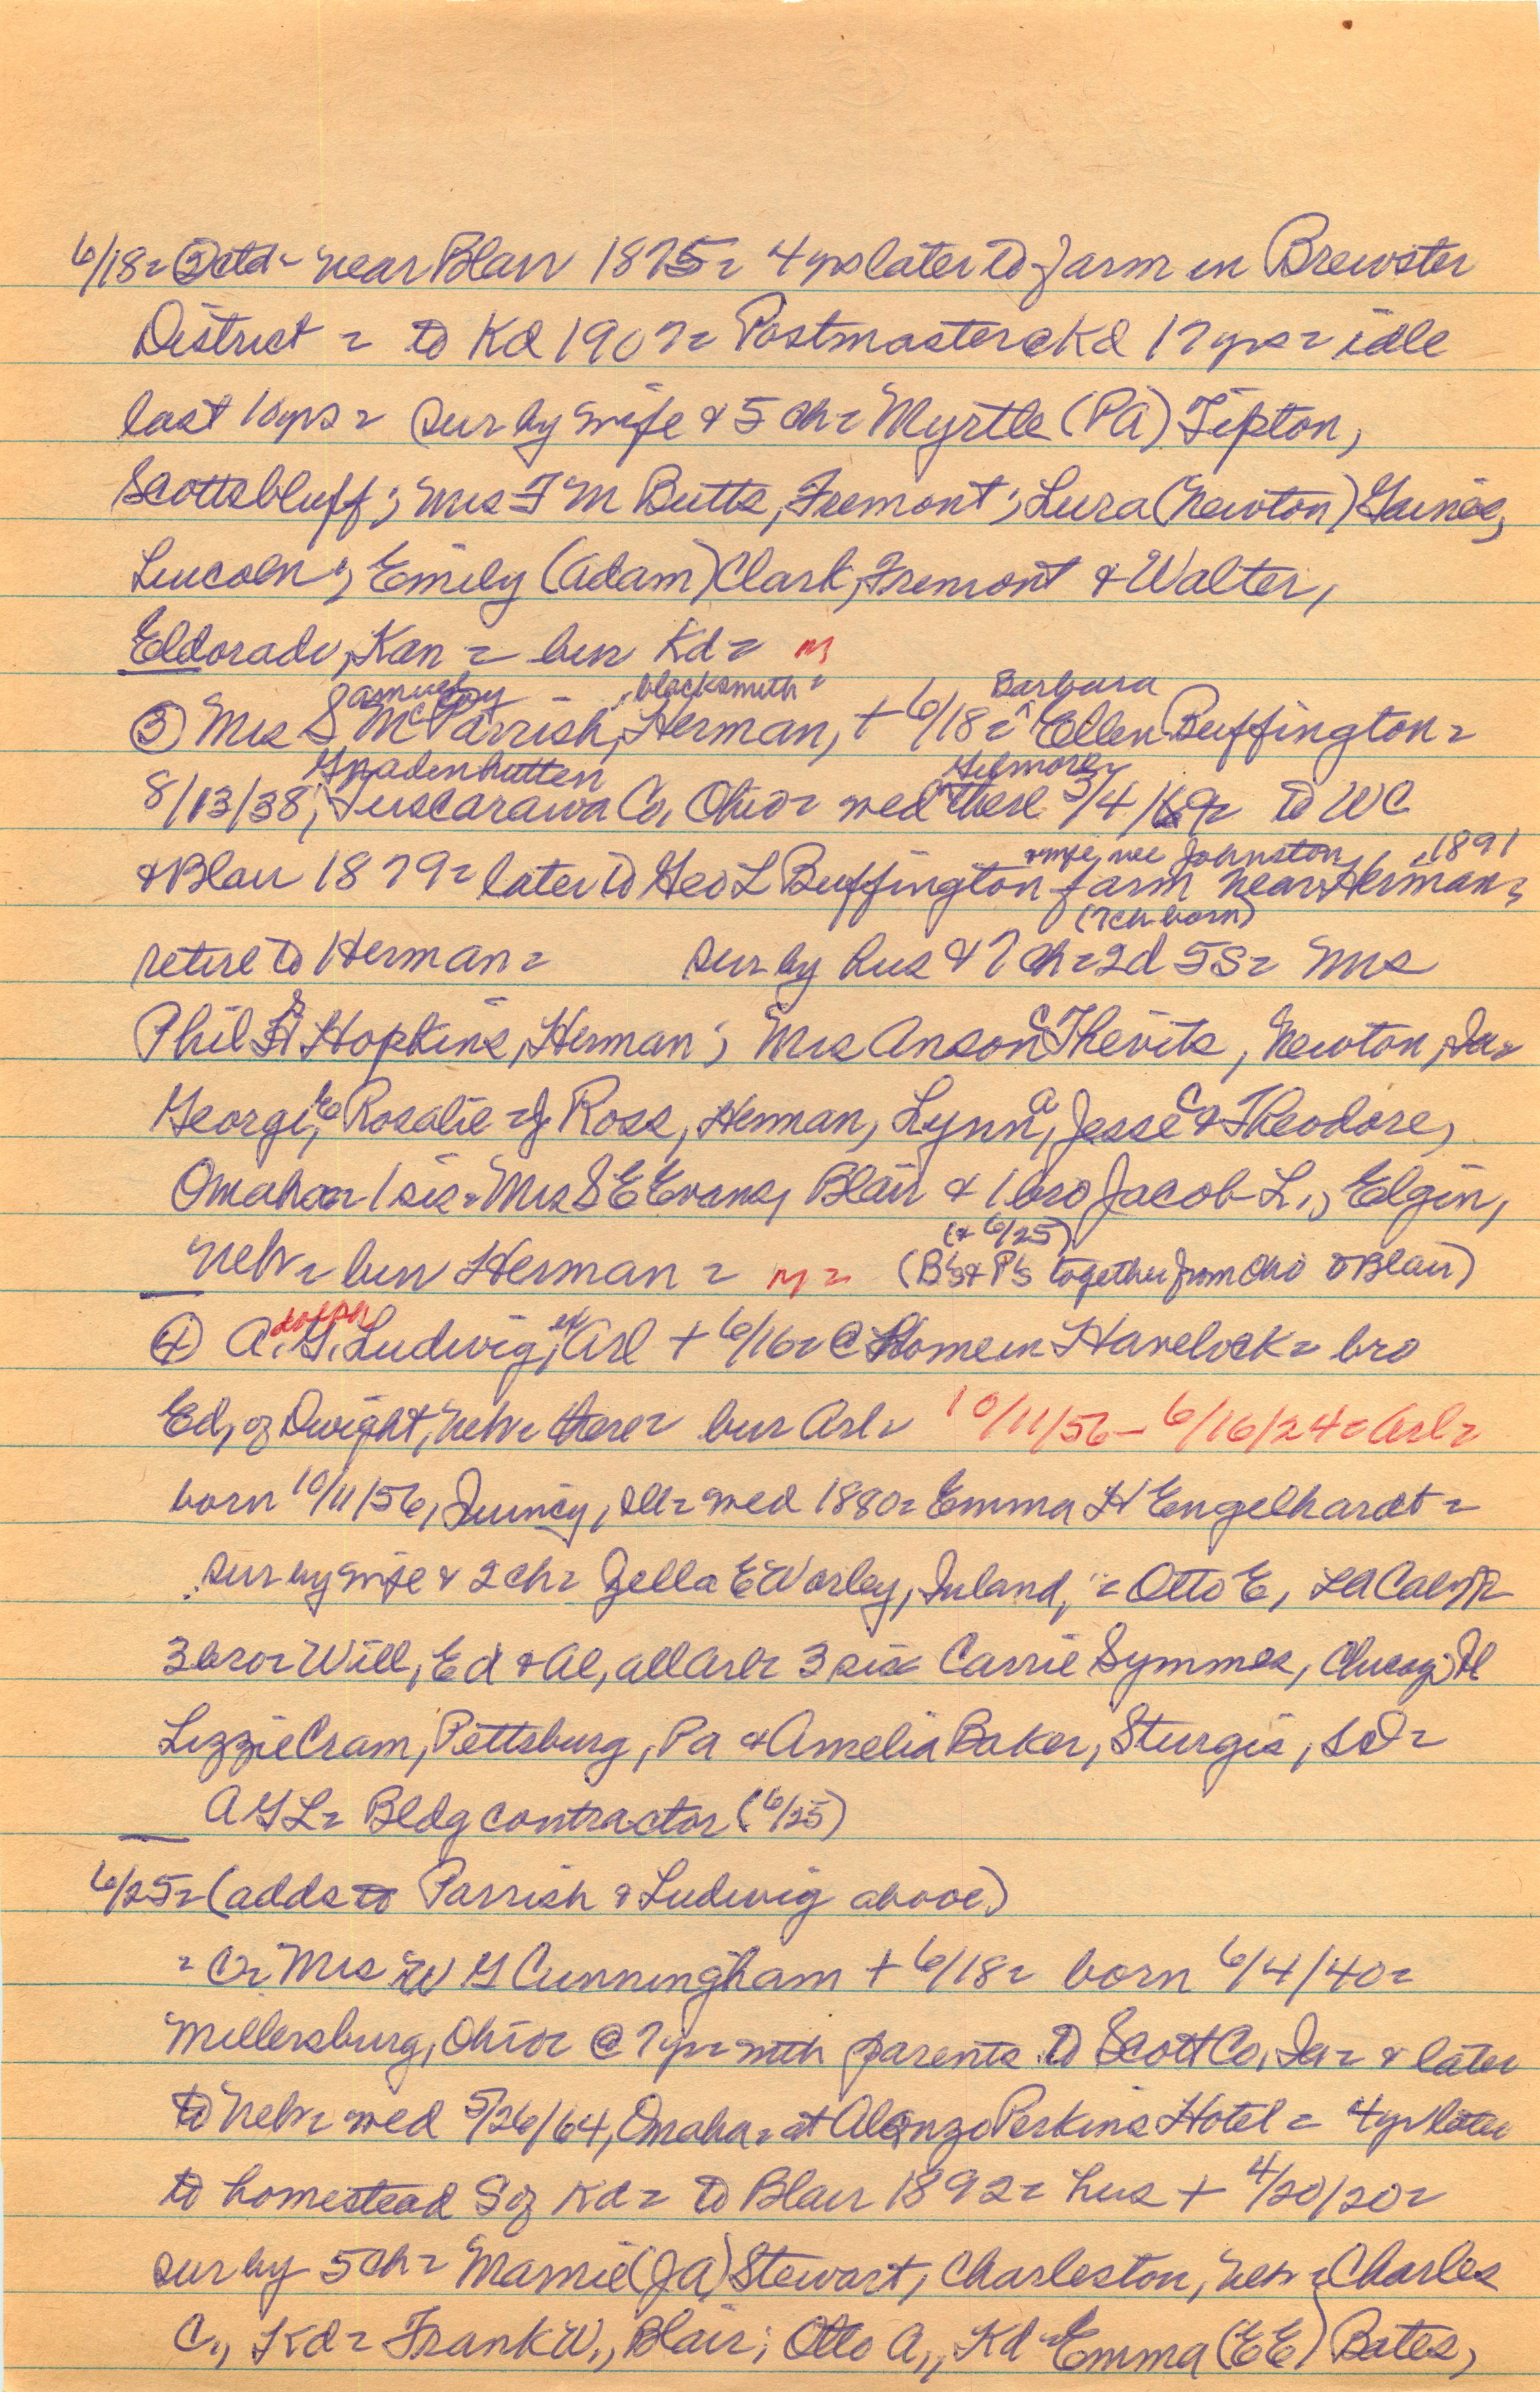 6/18 = ② ctd - near Blair 1875 = 4 yrs later to farm in Brewster
District = to Kd 1907 = Postmaster @ Kd 17 yrs = idle
last 10 yrs = sur by wife & 5 ch = Myrtle (PA) Tipton,
Scottsbluff; Mrs F M Butts, Fremont; Lura (Newton) Gaines,
Lincoln; Emily (Adam) Clark, Fremont & Walter,
Eldorado, Kan = bur Kd = M
Samuel McCoy - blacksmith = Barbara
③ Mrs S M Parrish, Herman, + 6/18 = ^ Ellen Buffington =
Gnadenhutten Gilmore
8/13/38, Tuscarawa Co, Ohio = wed there 3/4/ = to WC
& wife, nee Johnston, 1891
& Blair 1879 = later to Geo L Buffington farm near Herman =
(7 ch born)
retire to Herman = sur by hus & 7 ch = 2d 5s = Mrs
Phil S Hopkins, Herman; Mrs Anson C Thevits, Newton, Ia =
George E, Rosalie = J Ross, Herman, Lynn A, Jesse C & Theodore,
Omaha = 1 sis = Mrs S E Evans, Blair & 1 bro Jacob L., Elgin,
(& 6/25)
Nebr = bur Herman = M = (B's & P's together from Ohio to Blair)
dolph ex
④ A. G. Ludwig, Arl + 6/16 = @ Home in Havelock = bro
Ed, of Dwight, Nebr there = bur Arl = 10/11/56 - 6/16/24 = Arl =
born 10/11/56, Quincy, Ill = wed 1880 = Emma H Engelhardt =
sur by wife & 2 ch = Zella E Worley, Inland, " = Otto E, LA Calif =
3 bro = Will, Ed & Al, all Arl = 3 sis Carrie Symmes, Chicago Ill
Lizzie Cram, Pittsburg, Pa & Amelia Baker, Sturgis, SD =
A G L = Bldg contractor (6/25)
6/25 = (adds to Parrish & Ludwig above)
= Mrs W G Cunningham + 6/18 = born 6/4/40 =
Millersburg, Ohio = @ 7 yr = with parents to Scott Co, Ia = & later
to Nebr = wed 5/26/64, Omaha = at Alonzo Perkins Hotel = 4 yr later
to homestead S of Kd = to Blair 1892 = hus + 4/20/20 =
sur by 5 ch = Mamie (J A) Stewart, Charleston, Nebr = Charles
C., Kd = Frank W., Blair; Otto A., Kd = Emma (E E) Bates,